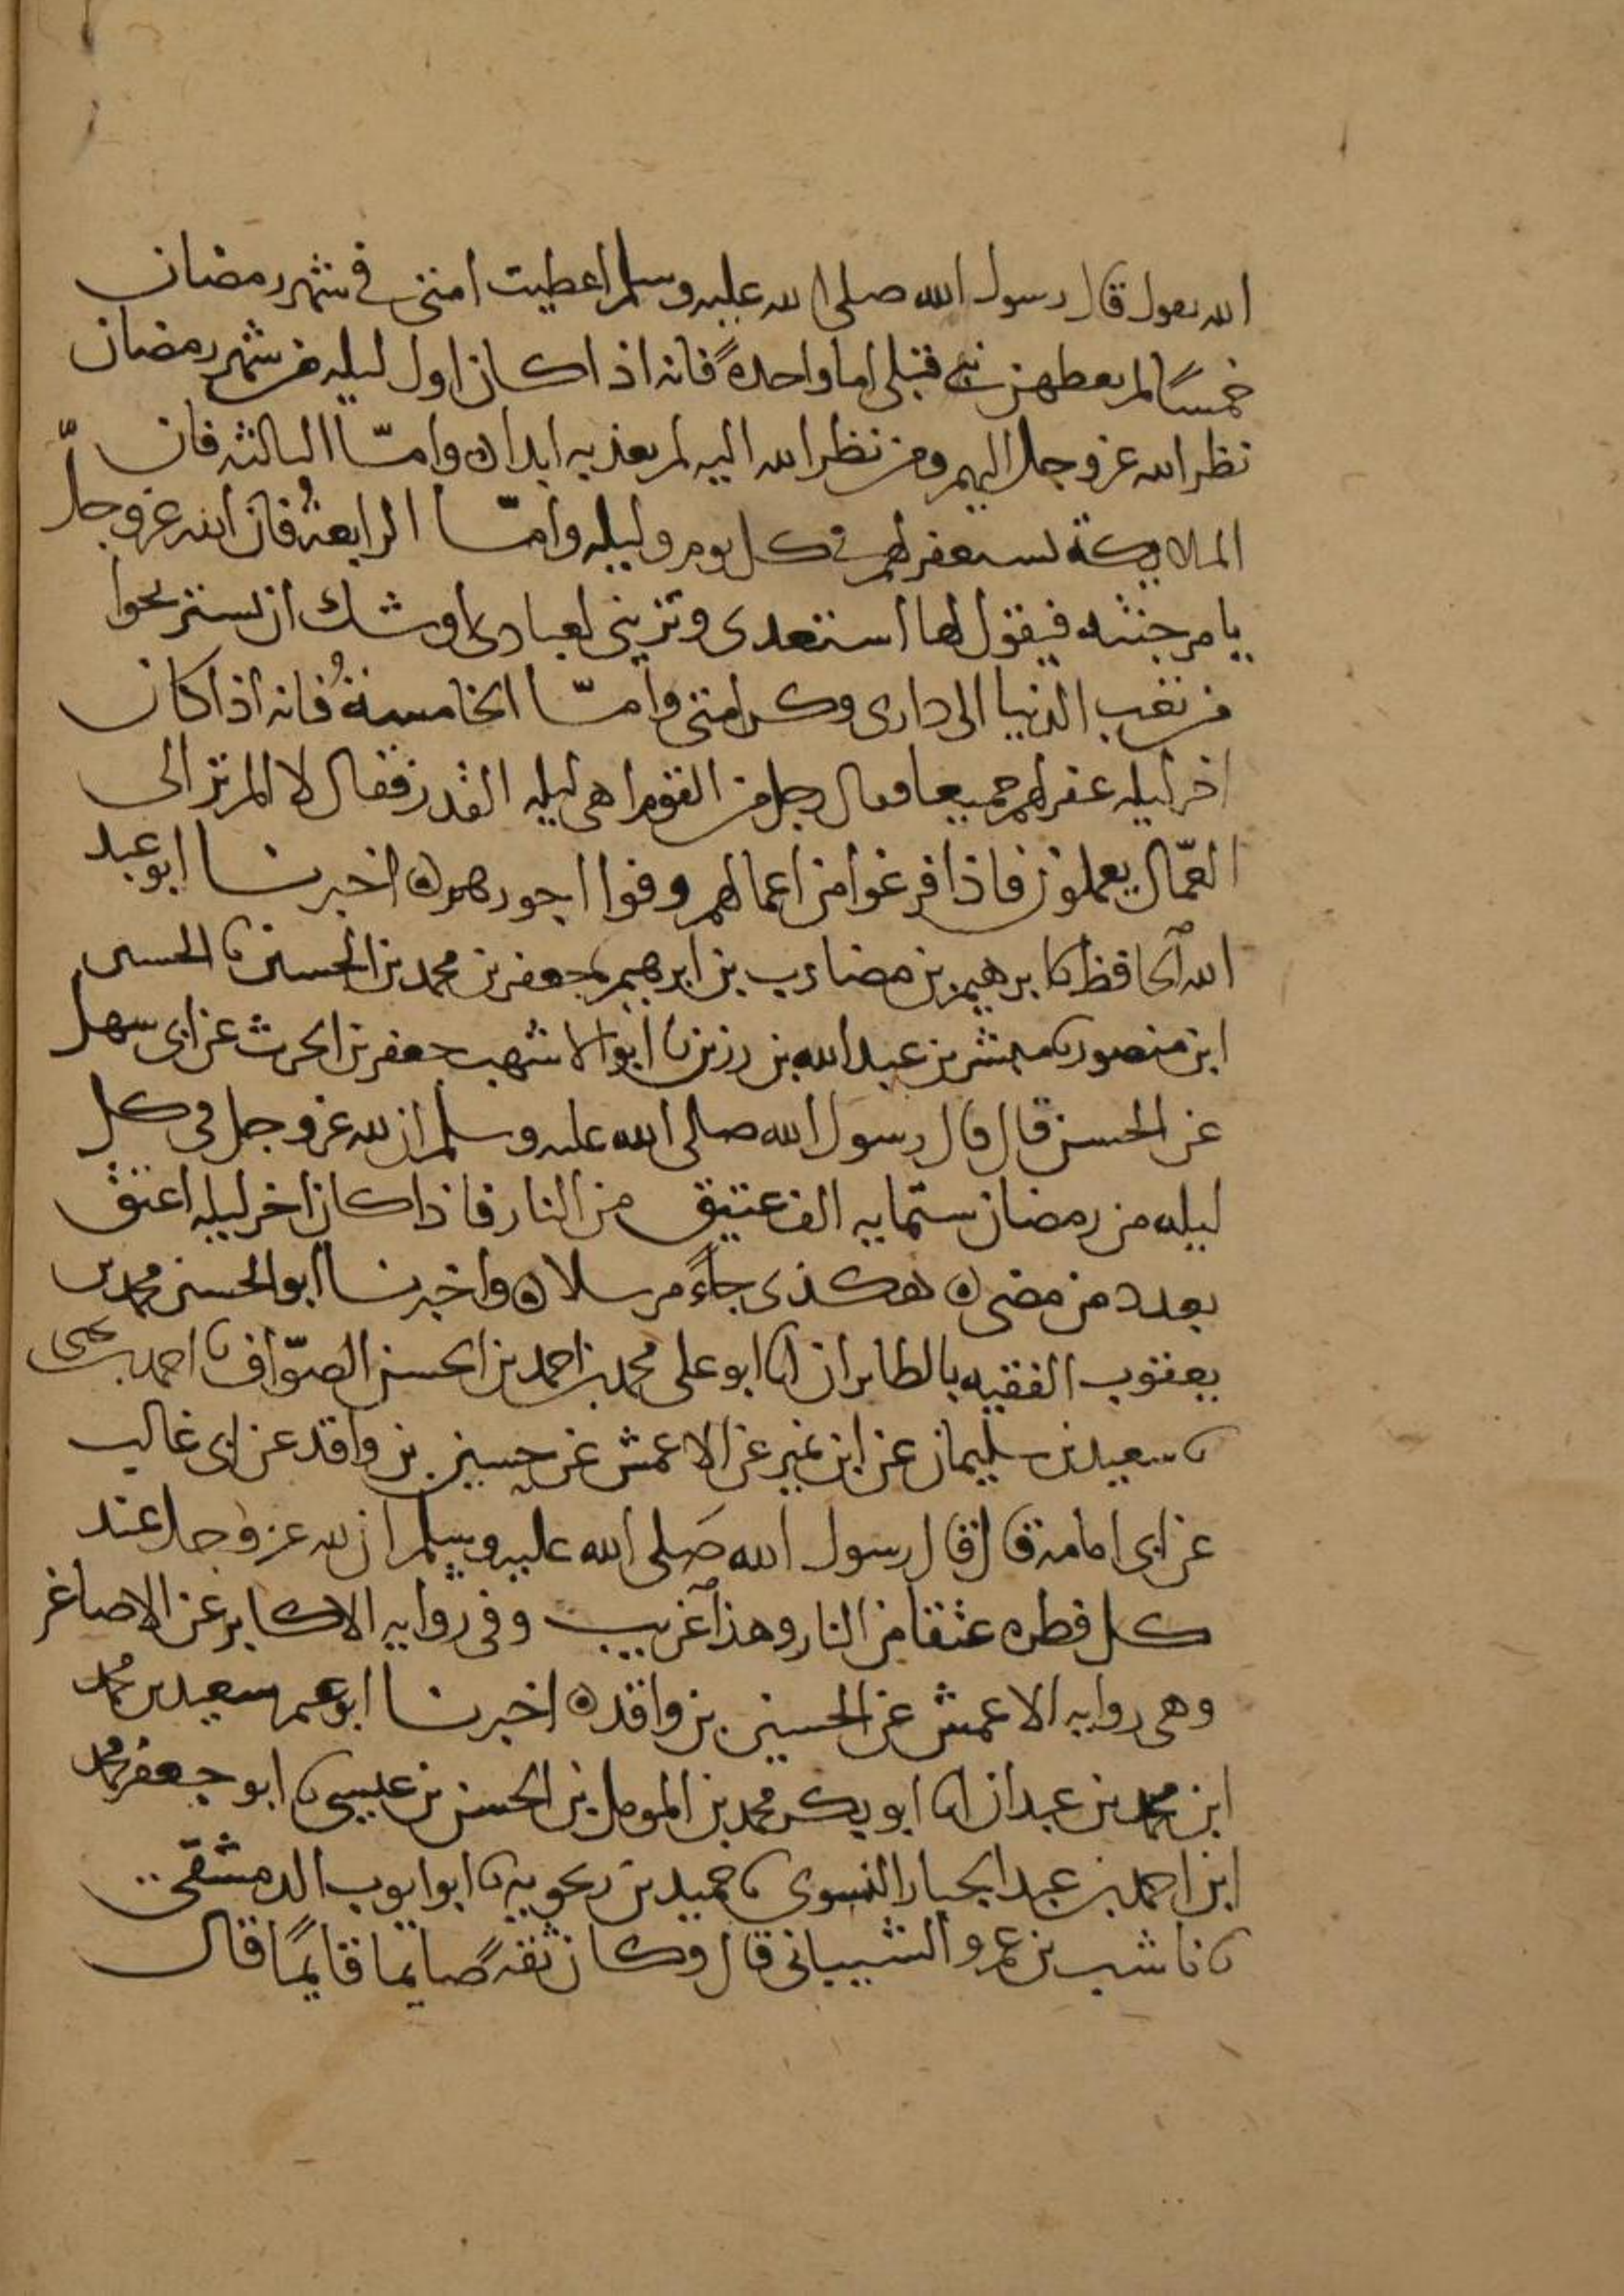 الله يقول قال رسول الله صلى الله عليه وسلم اعطيت امتي في شهر رمضان
خمسًا لم يعطهن نبي قبلي اما واحدةً فانه اذا كان اول ليله من شهر رمضان
نظر الله عز وجل اليهم ومن نظر الله اليه لم يعذبه ابدا ه وامّا الثالثه فان
الملايكة تستغفر لهم في كل يوم وليله وامّا الرابعةُ فان الله عز وجلّ
يامر جنته فيقول لها استعدى وتزيني لعبادى اوشك ان يستريحوا
من تعب الدنيا الى دارى وكرامتي وامّا الخامسةُ فانه اذا كان
اخر ليله غفر لهم جميعا فقال رجل من القوم اهى ليله القدر فقال لا الم تر الى
العمّال يعملون فاذا فرغوا من اعمالهم وفوا اجورهم ه اخبرنا ابو عبد
الله الحافظ نا ابرهيم بن مضارب بن ابرهيم نا جعفر بن محمد بن الحسين نا الحسين
ابن منصور نا مبشر بن عبد الله بن رزين نا ابو الاشهب جعفر بن الحرث عن ابى سهل
عن الحسن قال قال رسول الله صلى الله عليه وسلم ان لله عز وجل فى كل
ليله من رمضان ستمايه الف عتيق من النار فاذا كان اخر ليله اعتق
بعدد من مضى ه هكذى جاء مرسلا ه واخبرنا ابو الحسن محمد بن
يعقوب الفقيه بالطابران انا ابو على محمد بن احمد بن الحسن الصوّاف نا احمد بن يحيى
نا سعيد بن سليمان عن ابن نمير عن الاعمش عن حسين بن واقد عن ابى غالب
عن ابى امامة قال قال رسول الله صَلى الله عليه وسلم ان لله عز وجل عند
كل فطره عتقا من النار وهذا غريب وفى روايه الاكابر عن الاصاغر
وهى روايه الاعمش عن الحسين بن واقد ه اخبرنا ابو عمر سعيد بن محمد
ابن محمد بن عبدان انا ابو بكر محمد بن المومل بن الحسن بن عيسى نا ابو جعفر محمد
ابن احمد بن عبد الجبار النسوى نا حميد بن زنجويه نا ابو ايوب الدمشقى
نا ناشب بن عمرو الشيبانى قال وكان ثقهً صايما قايمًا قال